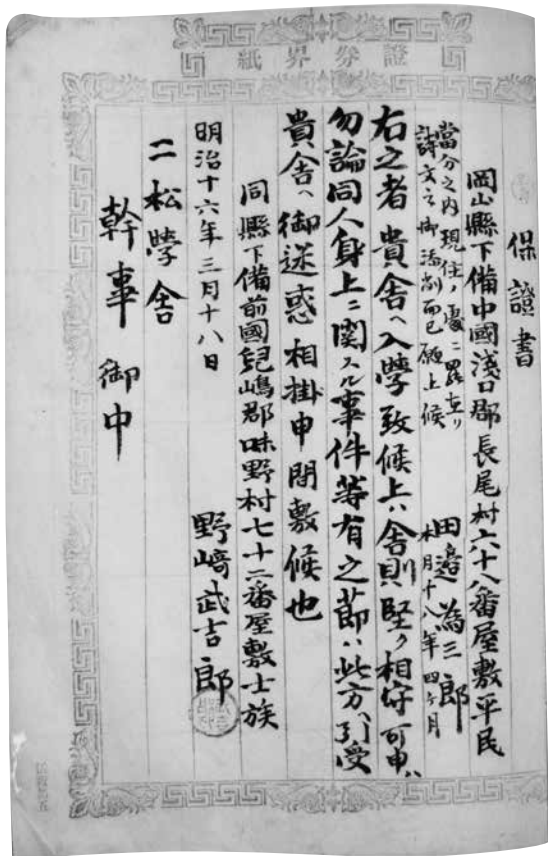 證券界紙
保證書
岡山縣下備中國淺口郡長尾村六十八番屋敷平民
田邉為三郎
本月十八年四ヶ月
當分之内現住ノ處ニ罷在リ
詩文之御添削而已願上候
右之者貴舎ヘ入學致候上ハ舎則堅ク相守可申ハ
勿論同人身上ニ関スル事件等有之節ハ此方ヘ引受
貴舎ヘ御迷惑相掛申間敷候也
同縣下備前國兒嶋郡味野村七十二番屋敷士族
野﨑武吉郎
明治十六年三月十八日
二松學舎
幹事御中